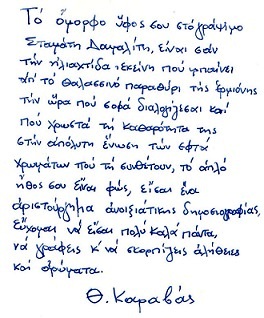 Τό ὄμορφο ὕφος σου στό γράψιμο
Σταμάτη Δαμαλίτη, εἶναι σάν
τήν ἡλιαχτίδα ἐκείνη πού μπαίνει
ἀπ' τό θαλασσινό παραθύρι τῆς Ἑρμιόνης
τήν ὥρα πού σοφά διαλογίζεσαι καί
πού χρωστᾶ τή καθαρότητα της
στήν ἀπόλυτη ἕνωση τῶν ἑφτά
χρωμάτων πού τή συνθέτουν, τό ἁπλό
ἦθος σου εἶναι φῶς, εἶσαι ἕνα
ἀριστούργημα ἀνοιξιάτικης δημοσιογραφίας,
εὔχομαι νά εἶσαι πολύ καλά πάντα,
νά γράφεις κ' νά σκορπίζεις ἀλήθειες
καί ὁράματα.
Θ. Καραβᾶς